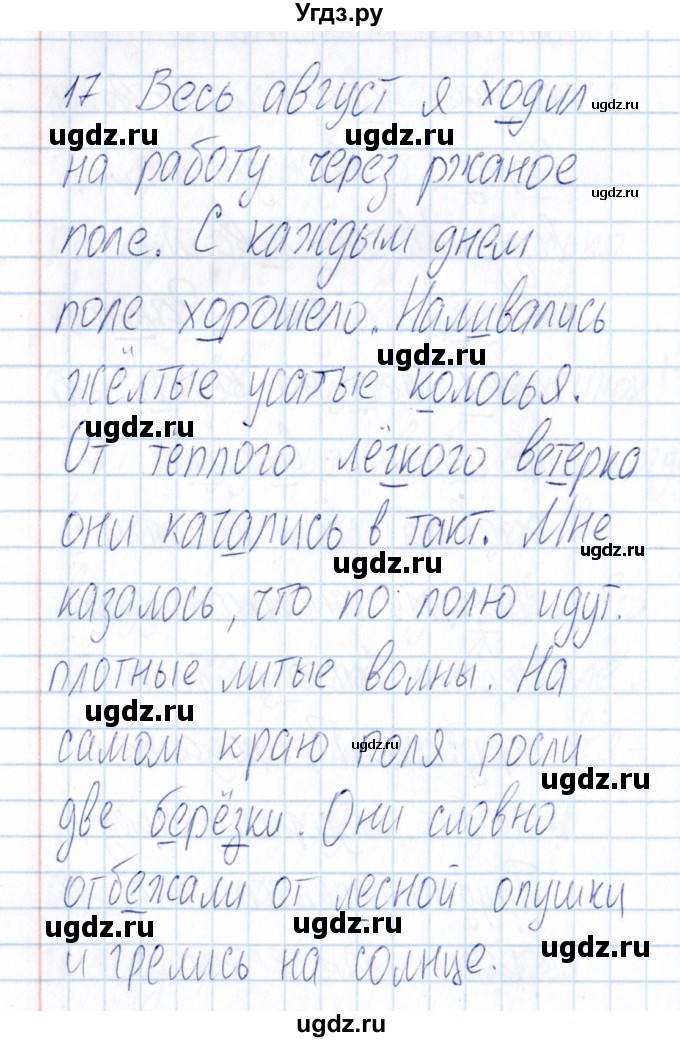 Угдз.ру
17 Весь август я ходил ugdz.ru
ugdz.ru ugdz.ru
на работу через ржаное
ugdz.ru
поле. С каждым днем
поле хорошело. Наливались
ugdz.ru
жёлтые усатые колосья.
ugdz.ru
От тёплого лёгкого ветерка
они качались в такт. Мне
ugdz.ru
ugdz.ru
казалось, что по полю идут
плотные литые волны. На
ugdz.ru
самом краю поля росли
ugdz.ru
ugdz.ru
две берёзки. Они словно
отбежали от лесной опушки
ugdz.ru ugdz.ru ugdz.ru
и грелись на солнце.
ugdz.ru